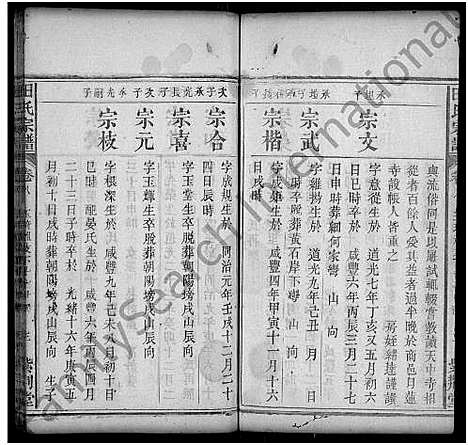 與流俗同是以屢試輒輟嘗教讀天中寺招
從者百餘人愛其益者過半晚於商邑月蓮
寺設帳人皆重之
承祖子
宗文
字意從生於 道光七年丁亥又五月初六
日巳時卒於 咸豐六年丙辰三月二十
日申時葬 山 向
宗武
字維揚生於 道光九年己丑 月 日
時卒脫葬黃石岸下 山 向
宗楷
字成矩生於 咸豐四年甲寅十一月十六
日戌時
次子
宗合
字成規生於 同治元年壬戌十二月二十
四日辰時
宗喜
字玉堂生卒脫葬朝陽塝戌山辰向
次子
宗元
字玉賓生卒脫葬朝陽塝戌山辰向
承先嗣子
宗枝
字根深生於 咸豐九年己未六月初十日
巳時 配晏氏生於 咸豐六年丙辰四月
二十三日子時卒於 光緒十六年庚寅五
月初十日戌時葬朝陽塝戌山辰向 生子
田氏宗譜
卷八
紫荊堂